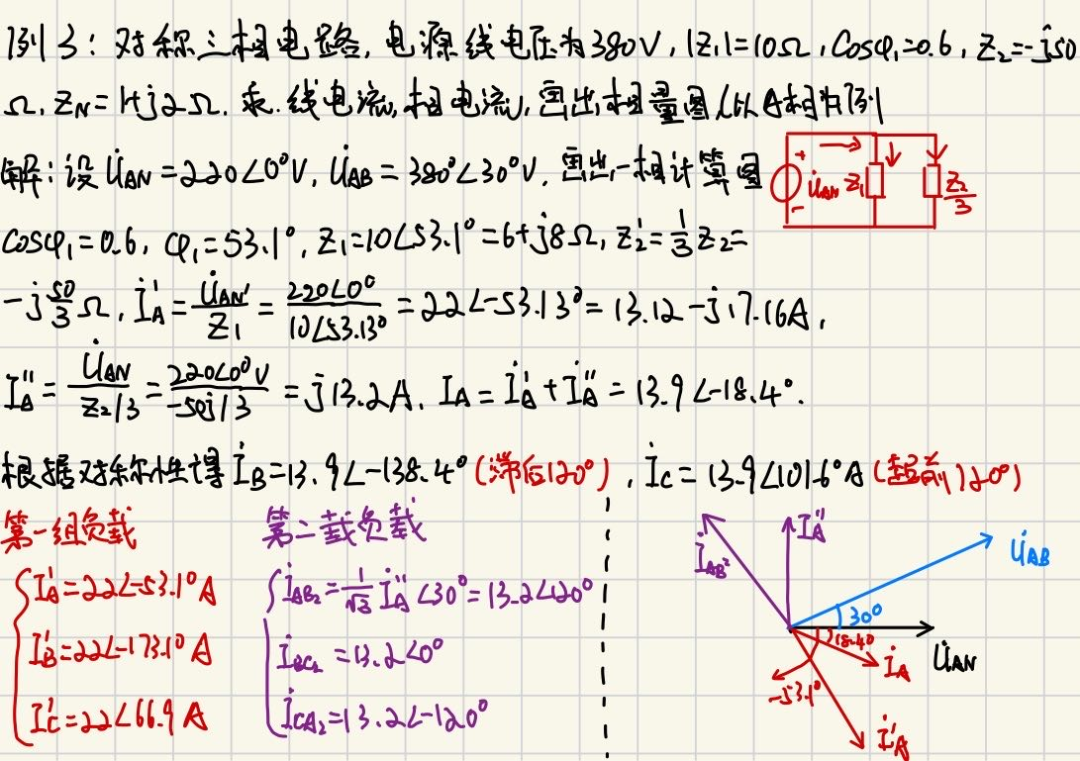 例3：对称三相电路，电源线电压为380V，|Z₁|=10Ω，cosφ₁=0.6，Z₂=-j50
Ω，Z_N=1+j2Ω. 求：线电流，相电流，画出相量图(以A相为例)
解：设U̇AN=220∠0°V，U̇AB=380°∠30°V. 画出一相计算图
+ U̇AN - Z₁ Z₂/3
cosφ₁=0.6，φ₁=53.1°，Z₁=10∠53.1°=6+j8Ω，Z₂'=1/3 Z₂=
-j50/3Ω，İ'A=U̇AN'/Z₁=220∠0°/10∠53.13°=22∠-53.13°=13.12-j17.16A，
I''A=U̇AN/Z₂/3=220∠0°V/-50j/3=j13.2A. IA=İ'A+İ''A=13.9∠-18.4°.
根据对称性得İB=13.9∠-138.4°(滞后120°)，İC=13.9∠101.6°A(超前120°)
第一组负载
I'A=22∠-53.1°A
I'B=22∠-173.1°A
I'C=22∠66.9A
第二载负载
İAB₂=1/√3 İ''A∠30°=13.2∠120°
İBC₂=13.2∠0°
İCA₂=13.2∠-120°
İAB² İ''A U̇AB
30°
18.4°
İA U̇AN
-53.1°
İ'A